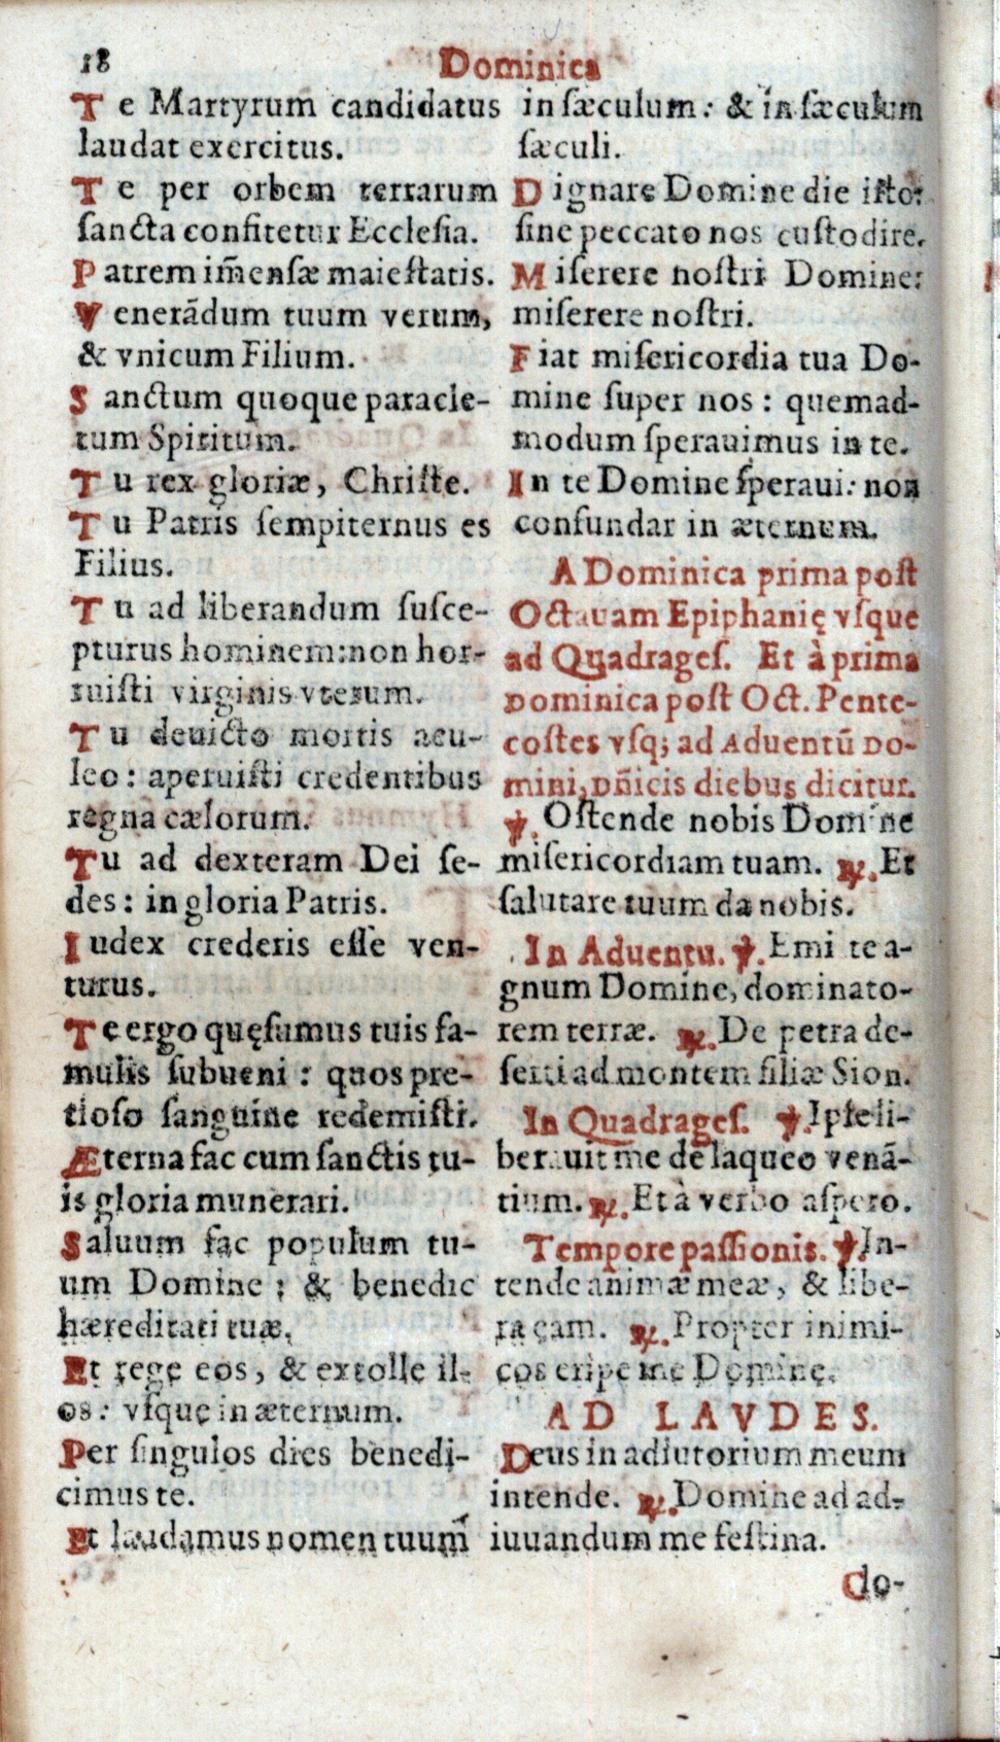 18
Dominica
Te Martyrum candidatus
laudat exercitus.
Te per orbem terrarum
ſancta confitetur Eccleſia.
Patrem im̄enſæ maieſtatis.
Venerādum tuum verum,
& vnicum Filium.
Sanctum quoque paracle-
tum Spiritum.
Tu rex gloriæ, Chriſte.
Tu Patris ſempiternus es
Filius.
Tu ad liberandum ſuſce-
pturus hominem: non hor-
ruiſti virginis vterum.
Tu deuicto mortis acu-
leo: aperuiſti credentibus
regna cælorum.
Tu ad dexteram Dei ſe-
des: in gloria Patris.
Iudex crederis eſſe ven-
turus.
Te ergo quęſumus tuis fa-
mulis ſubueni: quos pre-
tioſo ſanguine redemiſti.
Æterna fac cum ſanctis tu-
is gloria munerari.
Saluum fac populum tu-
um Domine: & benedic
hæreditati tuæ.
Et rege eos, & extolle il-
os: vſque in æternum.
Per ſingulos dies benedi-
cimus te.
Et laudamus nomen tuum
in ſæculum: & in ſæculum
ſæculi.
Dignare Domine die iſto:
ſine peccato nos cuſtodire.
Miſerere noſtri Domine:
miſerere noſtri.
Fiat miſericordia tua Do-
mine ſuper nos: quemad-
modum ſperauimus in te.
In te Domine ſperaui: non
confundar in æternum.
A Dominica prima poſt
Octauam Epiphanię vſque
ad Quadrageſ. Et à prima
Dominica poſt Oct. Pente-
coſtes vſq; ad Aduentū Do-
mini, Dn̄icis diebus dicitur.
℣. Oſtende nobis Domine
miſericordiam tuam. ℟. Et
ſalutare tuum da nobis.
In Aduentu. ℣. Emitte a-
gnum Domine, dominato-
rem terræ. ℟. De petra de-
ſerti ad montem filiæ Sion.
In Quadrageſ. ℣. Ipſe li-
berauit me de laqueo venā-
tium. ℟. Et à verbo aſpero.
Tempore paſſionis. ℣. In-
tende animæ meæ, & libe-
ra eam. ℟. Propter inimi-
cos eripe me Domine.
AD LAVDES.
Deus in adiutorium meum
intende. ℟. Domine ad ad-
iuuandum me feſtina.
do-